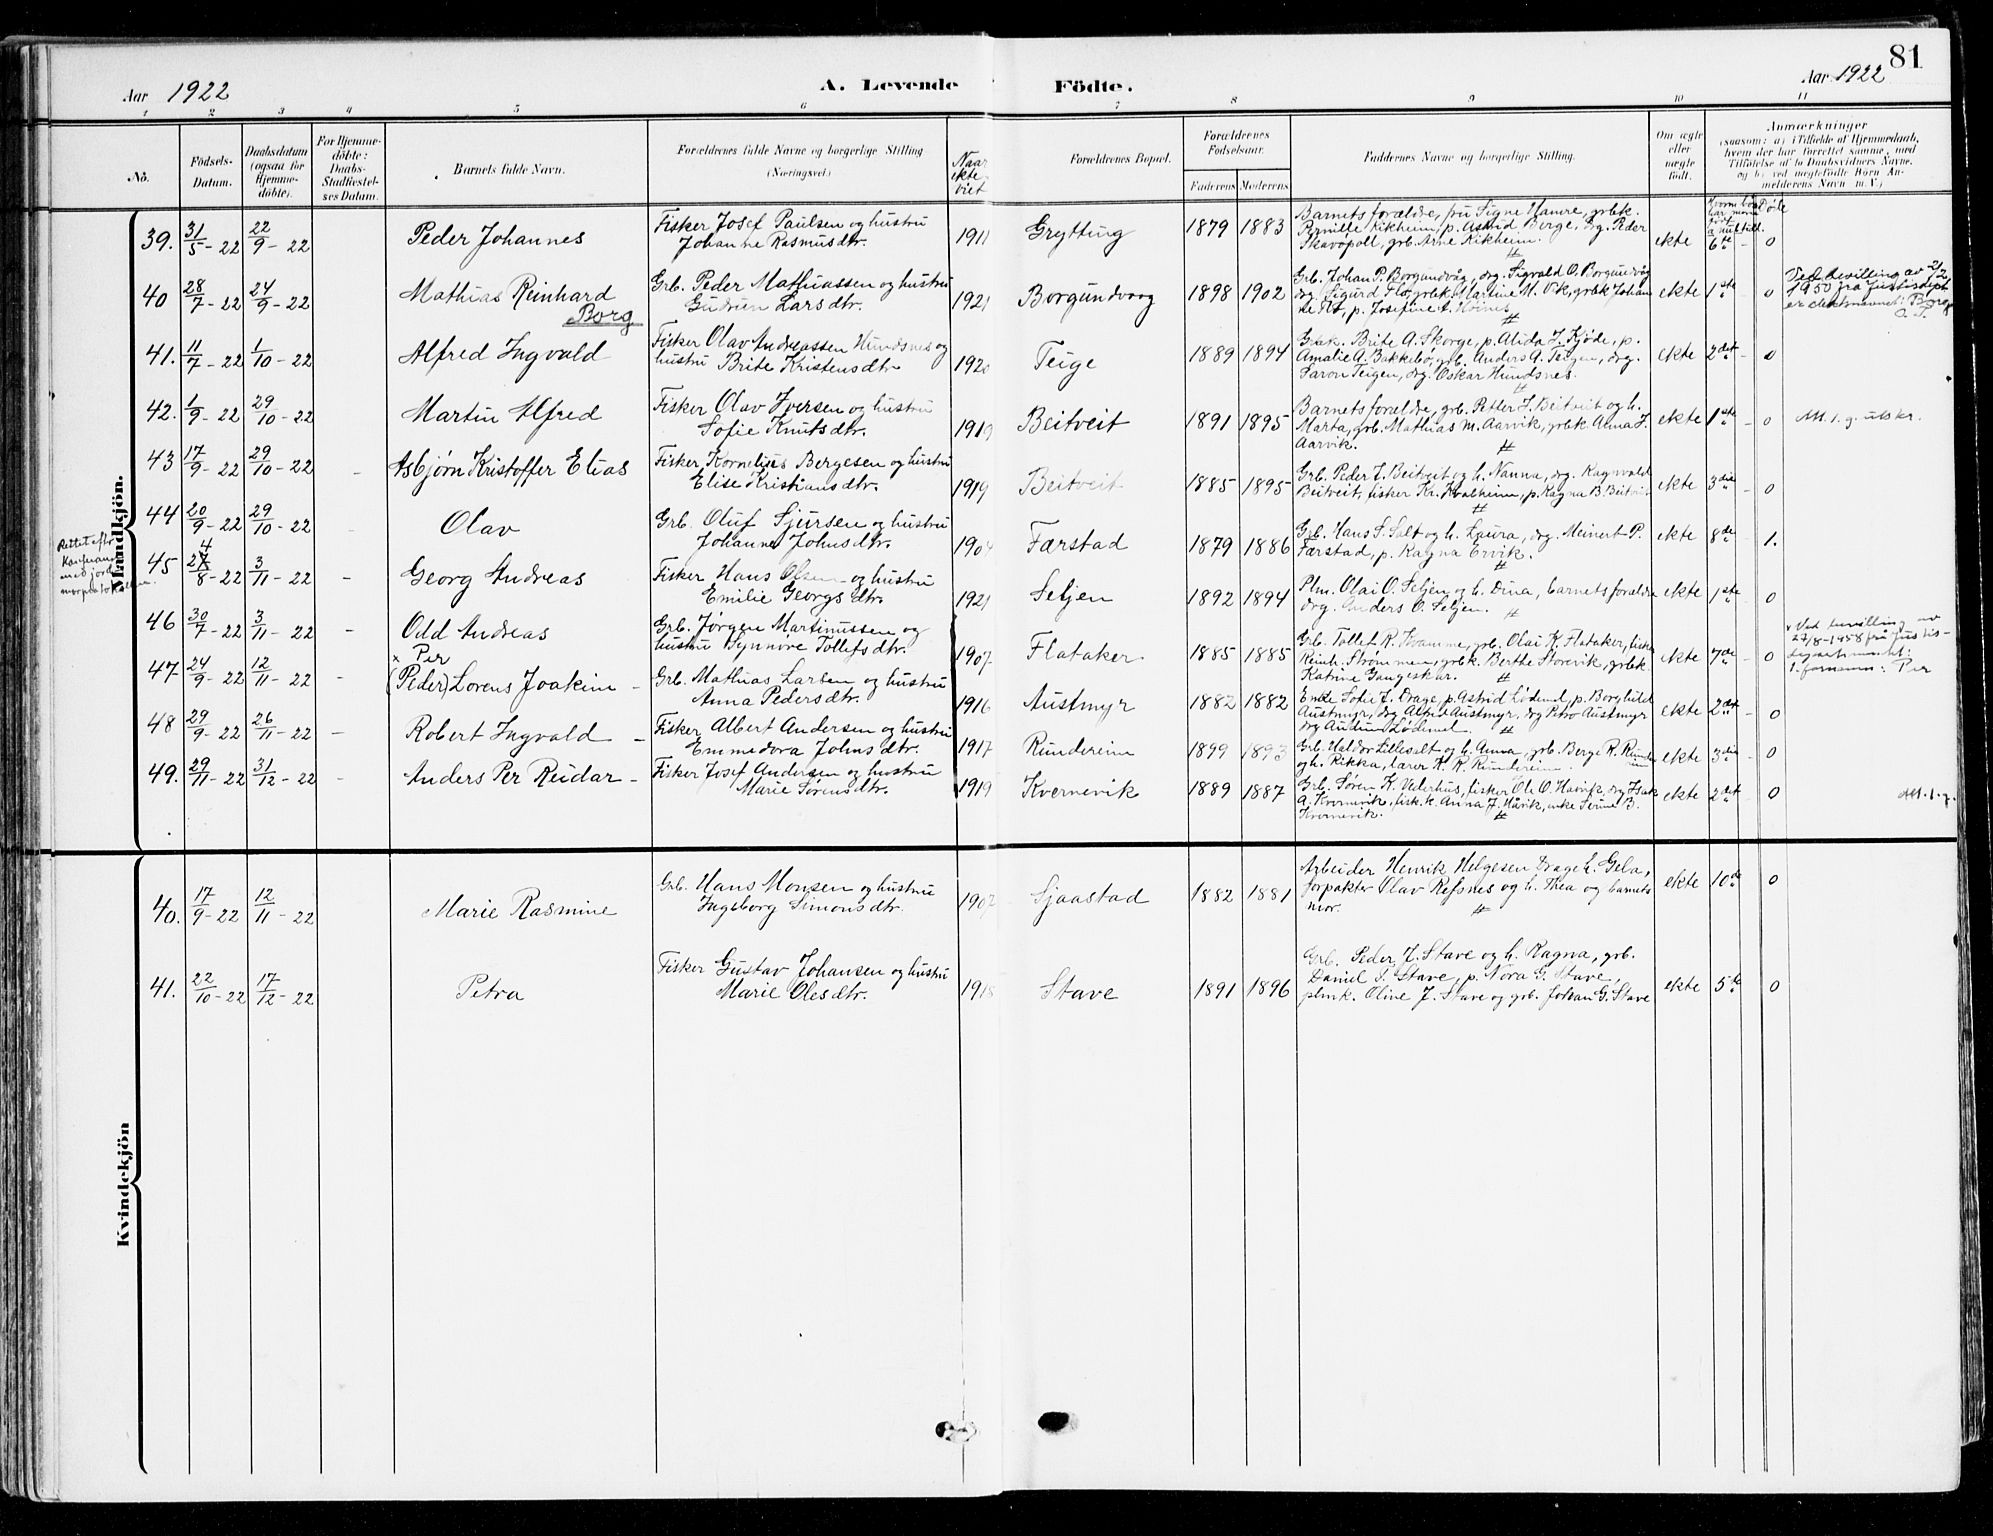 81
Aar 1922
A. Levende Födte.
Aar 1922
1 2 3 4 5 6 7 8 9 10 11
No.
Födsels-Datum.
Daabsdatum (ogsaa for Hjemmedöbte).
For Hjemmedöbte: Daabs-Stadfæstelses Datum.
Barnets fulde Navn.
Forældrenes fulde Navne og borgerlige Stilling (Næringsvei.)
Naar ekteviet
Forældrenes Bopæl.
Forældrenes Födselsaar.
Faderens Moderens
Faddernes Navne og borgerlige Stilling.
Om ægte eller uægte födt.
Anmærkninger
(saasom: a) i Tilfælde af Hjemmedaab, hvem der har forrettet samme, med Tilföielse af to Daabsvidners Navne, og b) ved uægtefödte Börn Anmelderens Navn m. V.)
Mandkjön.
39. 31/5-22 22/9-22 Peder Johannes
Fisker Josef Paulsen og hustru
Johanne Rasmusdtr. 1911 Grytting 1879 1883
Barnets forældre, fru Signe Hamre, grbk.
Pernille Rikheim, p. Astrid Berge, drg. Peder
Skavøpoll, grb. Arne Rikheim. ekte 6te - 0
40 28/7-22 24/9-22 Mathias Reinhard
Borg
Grb. Peder Mathiassen og hustru
Gudrun Larsdtr. 1921 Borgundvaag 1898 1902
Grb. Johan P. Borgundvåg, drg. Sigvald O. Borgundvåg
drg. Sigurd Flo, grbk. Martine M. Osk, grbk Johan
ne Flo, p. Josefine A. Hoines ekte 1ste 0
Ved bevilling av 2/2
1950 fra justisdept.
er etternavnet: Borg
41. 11/7-22 1/10-22 Alfred Ingvald
Fisker Olav Andreassen Hundsnes og
hustru Brite Kristensdtr. 1920 Teige 1889 1894
Gbk. Brite A. Skorge, p. Alida J. Kjøde, p.
Amalie A. Bakkebø, grb. Anders A. Teigen, drg.
Saron Teigen, drg. Oskar Hundsnes. ekte 2det - 0
42. 1/9-22 29/10-22 Martin Alfred
Fisker Olav Iversen og hustru
Sofie Knutsdtr. 1919 Beitveit 1891 1895
Barnets forældre, grb. Petter J. Beitveit og h.
Marta, grb. Mathias M. Aarvik, grbk. Anna J.
Aarvik. ekte 1ste - 0 Att. 1. g. utskr.
43 17/9-22 29/10-22 - Asbjørn Kristoffer Elias
Fisker Kornelius Bergesen og hustru
Elise Kristiansdtr. 1919 Beitveit 1885 1895
Grb. Peder J. Beitveit og h. Nanna, drg. Ragnvald
Beitveit, fisker Kr. Kvalheim, p. Ragna B. Beitveit ekte 3die - 0
44 20/9-22 29/10-22 Olav
Grb. Oluf Sjursen og hustru
Johanne Johnsdtr. 1904 Færstad 1879 1886
Grb. Hans S. Salt og h. Laura, drg. Meinert P.
Færstad, p. Ragna Ervik. ekte 8de - 1.
45 27/8-22 3/11-22 - Georg Andreas
Fisker Hans Olsen og hustru
Emilie Georgsdtr. 1921 Seljen 1892 1894
Plm. Olai O. Seljen og h. Dina, barnets forældre
drg. Anders O. Seljen. ekte 1ste 0
46 30/7-22 3/11-22 - Odd Andreas
Grb. Jørgen Martinussen og
hustru Synnøve Tollefsdtr. 1907 Flataker 1885 1885
Grb. Tollef R. Kvamme, grb. Olai K. Flataker, fisker
Reinh. Strømmen, grbk. Berthe Storevik, grbk.
Katrine Gangeskar. ekte 7de - 0
x Ved bevilling av
27/8-1958 frå Justis-
departementet:
1. fornavn: Per
47- 24/9-22 12/11-22 - x Per
(Peder) Lorens Joakim -
Grb. Mathias Larsen og hustru
Anna Pedersdtr. 1916 Austmyr 1882 1882
Enke Sofie J. Drage, p. Astrid Lødemel, p. Borghild
Austmyr, drg Alfred Austmyr, drg Petro Austmyr
drg Audun Lødemel ekte 2det - 0
48 29/9-22 26/11-22 - Robert Ingvald -
Fisker Albert Andersen og hustru
Emmedora Johnsdtr. 1917 Rundereim 1899 1893
Grb. Haldor Lillesalt og h. Anna, grb. Berge R. Runde
og h. Rikka, lærer K. R. Rundereim. ekte 3die - 0
49. 29/11-22 31/12-22 - Anders Per Reidar -
Fisker Josef Andersen og hustru
Marie Sørensdtr. 1919 Kvernevik 1889 1887
Grb. Søren K. Vederhus, fisker Ole O. Havik, drg Isak
A. Kvernevik, fisk.k. Anna J. Håvik, enke Serine B.
Kvernevik. ekte 2det 0 Att. 1. g.
Kvindekjön
40. 17/9-22 12/11-22 Marie Rasmine
Grb. Hans Monsen og hustru
Ingeborg Simonsdtr. 1907 Sjaastad 1882 1881
Arbeider Henrik Helgesen Drage h. Gela,
forpakter Olav Refsnes og h. Thea og barnets
mor. ekte 10de 0
41. 22/10-22 17/12-22 Petra
Fisker Gustav Johansen og hustru
Marie Olesdtr. 1918 Stave 1891 1896
Grb. Peder J. Stave og h. Ragna, grb.
Daniel S. Stave, p. Nora G. Stave,
plmk. Oline J. Stave og grb. Johan G. Stave ekte 5te 0